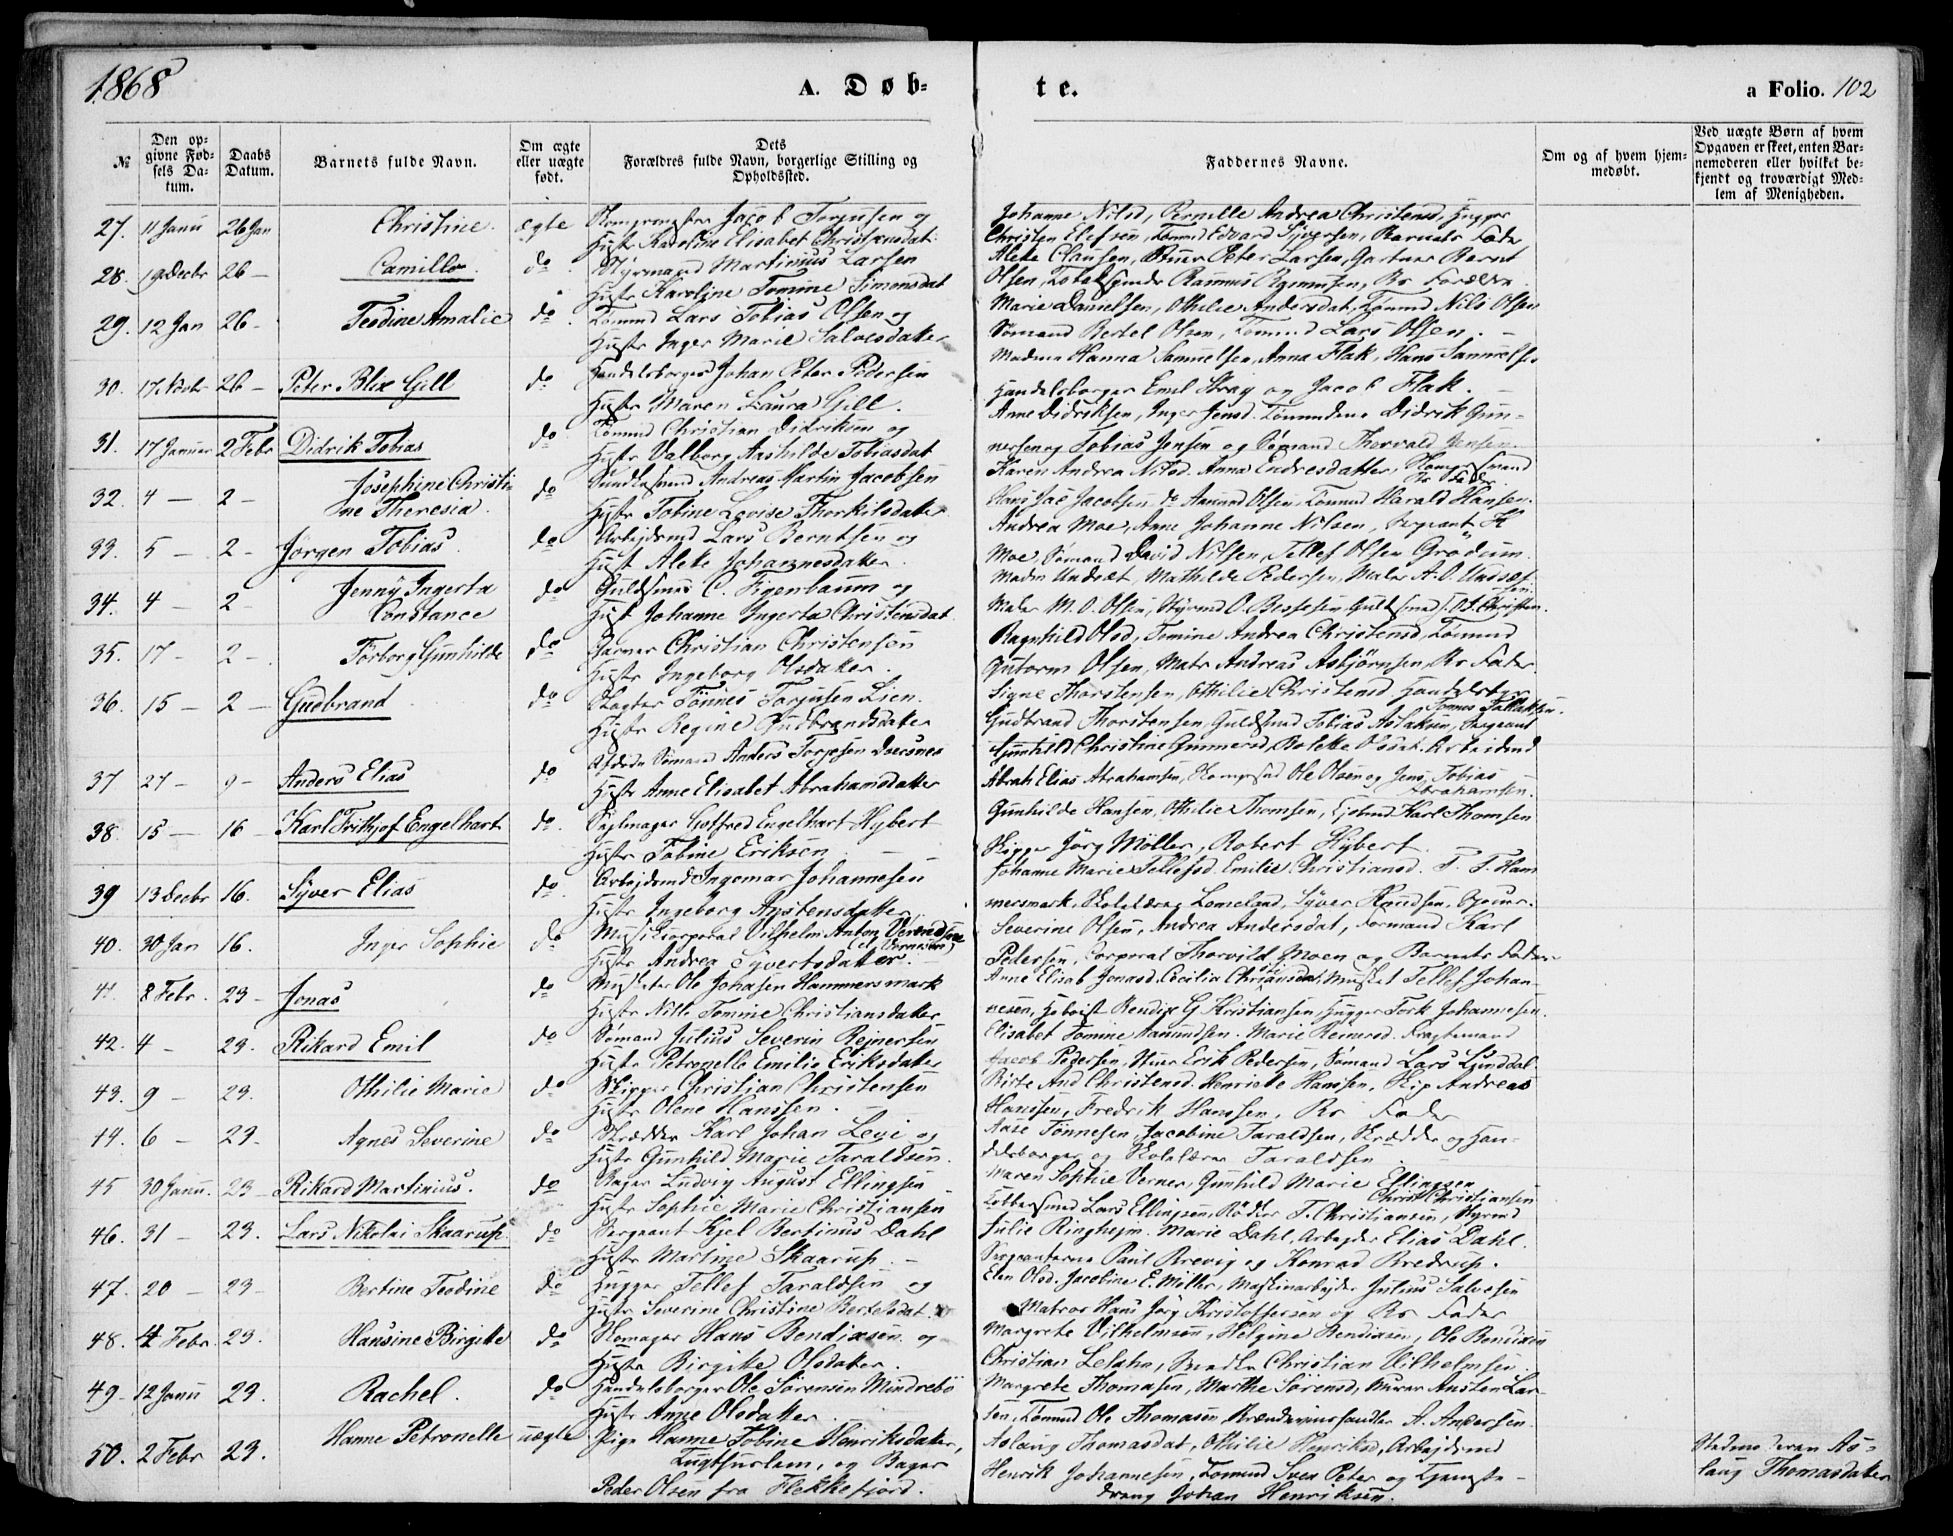 1868
A. Døb-
te.
a Folio. 102
№
Den op-
givne Fød-
sels Da-
tum.
Daabs
Datum.
Barnets fulde Navn.
Om ægte
eller uægte
født.
Dets
Forældres fulde Navn, borgerlige Stilling og
Opholdssted.
Faddernes Navne.
Om og af hvem hjem-
medøbt.
Ved uægte Børn af hvem
Opgaven er skeet, enten Bar-
nemoderen eller hvilket be-
kjendt og troværdigt Med-
lem af Menigheden.
27. 11 Janu 26 Jan Christine. ægte Jacob Torjusen og
Hustr Karoline Elisabet Christensdat.
Johanne Nilsd, Pernille Andrea Christensd, Hugger
Christen Elefsen, Tømmd Edvard Syversen, Barnets Fader
28. 19 Decbr 26 — Camilla. do Styrmand Martinius Larsen
Hustr Karoline Tomine Simonsdat
Alette Clausen, Peter Larsen, Gartner Bernt
Olsen, Rasmus Bs Forældre
29. 12 Jan 26 — Teodine Amalie do Tømmd Lars Tobias Olsen og
Hustr Inger Marie Salvesdatter
Marie Danielsen, Othilie Andersdat, Tømmd Nils Olsen
Sømand Bertel Olsen, Tømmd Lars Olsen. —
30. 17 Novbr 26 — Peter Blix Gill do Handelsborger Johan Peter Pedersen
Hustr Maren Laura Gill.
Madme Hanna Samuelsen, Anna Flak, Hans Samuelsen
Handelsborger Emil Stray og Jacob Flak. —
31. 17 Januar 2 Febr Didrik Tobias do Tømmd Christian Didriksen og
Hustr Valborg Aashilde Tobiasdat
Anne Didriksen, Inger Jensd. Tømmdene Didrik Gun-
nersen og Tobias Jensen og Sømand Thorvald Jensen.
32. 4 — 2 — Josephine Christi-
ne Theresia. do Andreas Martin Jacobsen
Hustr Tobine Lovise Thorkilsdatter
Karen Andrea Nilsd. Anna Endresdatter,
Bs Fader.
Hans Jac Jacobsen, do Aanund Olsen, Tømmd Harald Hansen.
33. 5 — 2 — Jørgen Tobias. do Arbejdsmd Lars Berntsen og
Hust Alette Johannesdatter.
Andrea Moe, Anne Johanne Nilsen, Sergeant H
Moe, Sømand David Nilsen, Tellef Olsen Grødum.
34. 4 — 2 — Jenny Ingerta
Constance do Guldsmed C. Figenbaum og
Hust Johanne Ingerta Christensdat
Madm Undset, Mathilde Pedersen, Maler A. O. Undset.
Maler M. O. Olsen, Styrmd O. Bessesen, Guldsmed J. O. S. Christen.
sen
35. 17 — 2 — Torborg Gunhilde do Garver Christian Christensen
Hustr Ingeborg Olsdatter.
Ragnhild Olsd, Tomine Andrea Christensd, Tømmd
Gutorm Olsen, Matr Andreas Asbjørnsen, Bs Fader
36. 15 — 2 — Gudbrand do Slagter Tønnes Torjusen Lien.
Hustr Regine Gudbrandsdatter
Signe Thorstensen, Othilie Christensd. Handelsbgr
Tønnes Tallaksen.
Gudbrand Thorstensen, Guldsmed Tobias Aslaksen, Sergeant
37 27 — 9 — Anders Elias do Afdøde Sømand Anders Torjesen
Hustr Anne Elisabet Abrahamsdatter
Gunhild Christine Gunnersd, Bolette Olsdat. Arbeidsmd
Abrah Elias Abrahamsen, Ole Olsen og Jens Tobias
Abrahamsen.
38. 15 — 16 — Karl Frithjof Engelhart do. Sejlmager Gotfred Engelhart Hybert
Hustr Tobine Eriksen. —
Gunhilde Hansen, Othilie Thomsen, Karl Thomsen
Skipper Jørg Møller, Robert Hybert.
39 13 Decbr 16. Syver Elias do. Arbejdsmd Ingomar Johannesen
Hustr Ingeborg Austensdatter
Johanne Marie Tellefsd. Emilie Christiansd. T. T. Ham
mersmark, Skolelærer Lomeland, Syver Knudsen,
40. 30 Jan 16. Inger Sophie do Musikkorporal Vilhelm Anton Verendsen
Hustr Andrea Syvertsdatter. —
Severine Olsen, Andrea Andersdat, Formand Karl
Pedersen, Corporal Thorvild Moen og Barnets Fader.
41 8 Febr. 23 — Jonas do Musketer Ole Johasen Hammersmark
Hustr Nille Tomine Christiansdatter
Anne Elisab Jonasd, Cecilia Christiansdat, Musket Tellef Johan-
nesen, Hoboist Bendix G Kristiansen, Hugger Terk Johannesen.
42. 4 — 23. Rikard Emil do Sømand Julius Severin Rejnersen
Hustr Petronelle Emilie Eriksdatter
Elisabet Tomine Aanundsen. Marie Reinersd.
Jacob Pedersen, Erik Pedersen, Sømand Lars Lunddal
43. 9 — 23. Othilie Marie do Skipper Christian Christensen
Hustr Olene Hanssen. —
Birte And Christensd. Henriette Hanssen, Skip Andreas
Hanssen, Fredrik Hanssen, Bs Fader
44. 6 — 23 — Agnes Severine do Skrædder Karl Johan Levi og
Hustr Gunhild Marie Taraldsen.
Aase Tønnesen, Jacobine Taraldsen, Skrædder og Han-
delsborger og Skolelærer Taraldsen
45 30 Janu. 23 — Rikard Martinius. do Bager Ludvig August Ellingsen
Hustr Sophie Marie Christiansen
Maren Sophie Verner, Gunhild Marie Ellingsen
Christ Christiansen
Kobbersmed Lars Ellingsen, Rødker T. Christiansen, Styrmd
46. 31 — 23. Lars Nikolai Skaarup. do Sergeant Kjel Bertinus Dahl
Hustr Martine Skaarup. —
Julie Ringhejm. Marie Dahl, Arbejder Elias Dahl.
Sergeanterne Paul Brevig og Konrad Bredrup.
47. 20 — 23 — Bertine Teodine do Hugger Tellef Taraldsen og
Hustr Severine Christine Bertelsdat.
Elen Olsd. Jacobine E. Møller, Maskinarbejder Julius Salvesen
Matros Hans Jørg Kristoffersen og Bs Fader
48. 4 Febr. 23. Hansine Birgitte do Skomager Hans Bendixsen og
Hustr Birgitte Olsdatter.
Margrete Vilhelmsen, Helgine Bendixsen, Ole Bendixen
Christian Christian Vilhelmsen.
49 — 12 Janu 23. Rachel. do Handelsborger Ole Sørensen Mindrebø
Hustr Anne Olsdatter.
Margrete Thomasen, Marthe Sørensd, Austen Lar-
sen, Tømmd Ole Thomasen, Brændevinshandler A. Andersen
50. 2 Febr 23. Hanne Petronelle uægte Pige Hanne Tobine Henriksdatter,
Tugthuslem, og Bager
Peder Olsen fra Flekkefjord.
Aslaug Thomasdat, Othilie Henriksd, Arbejdsmd
Henrik Johannesen, Tømmd Sven Peter og Tjeneste-
dreng Johan Henriksen.
As-
laug Thomasdatter